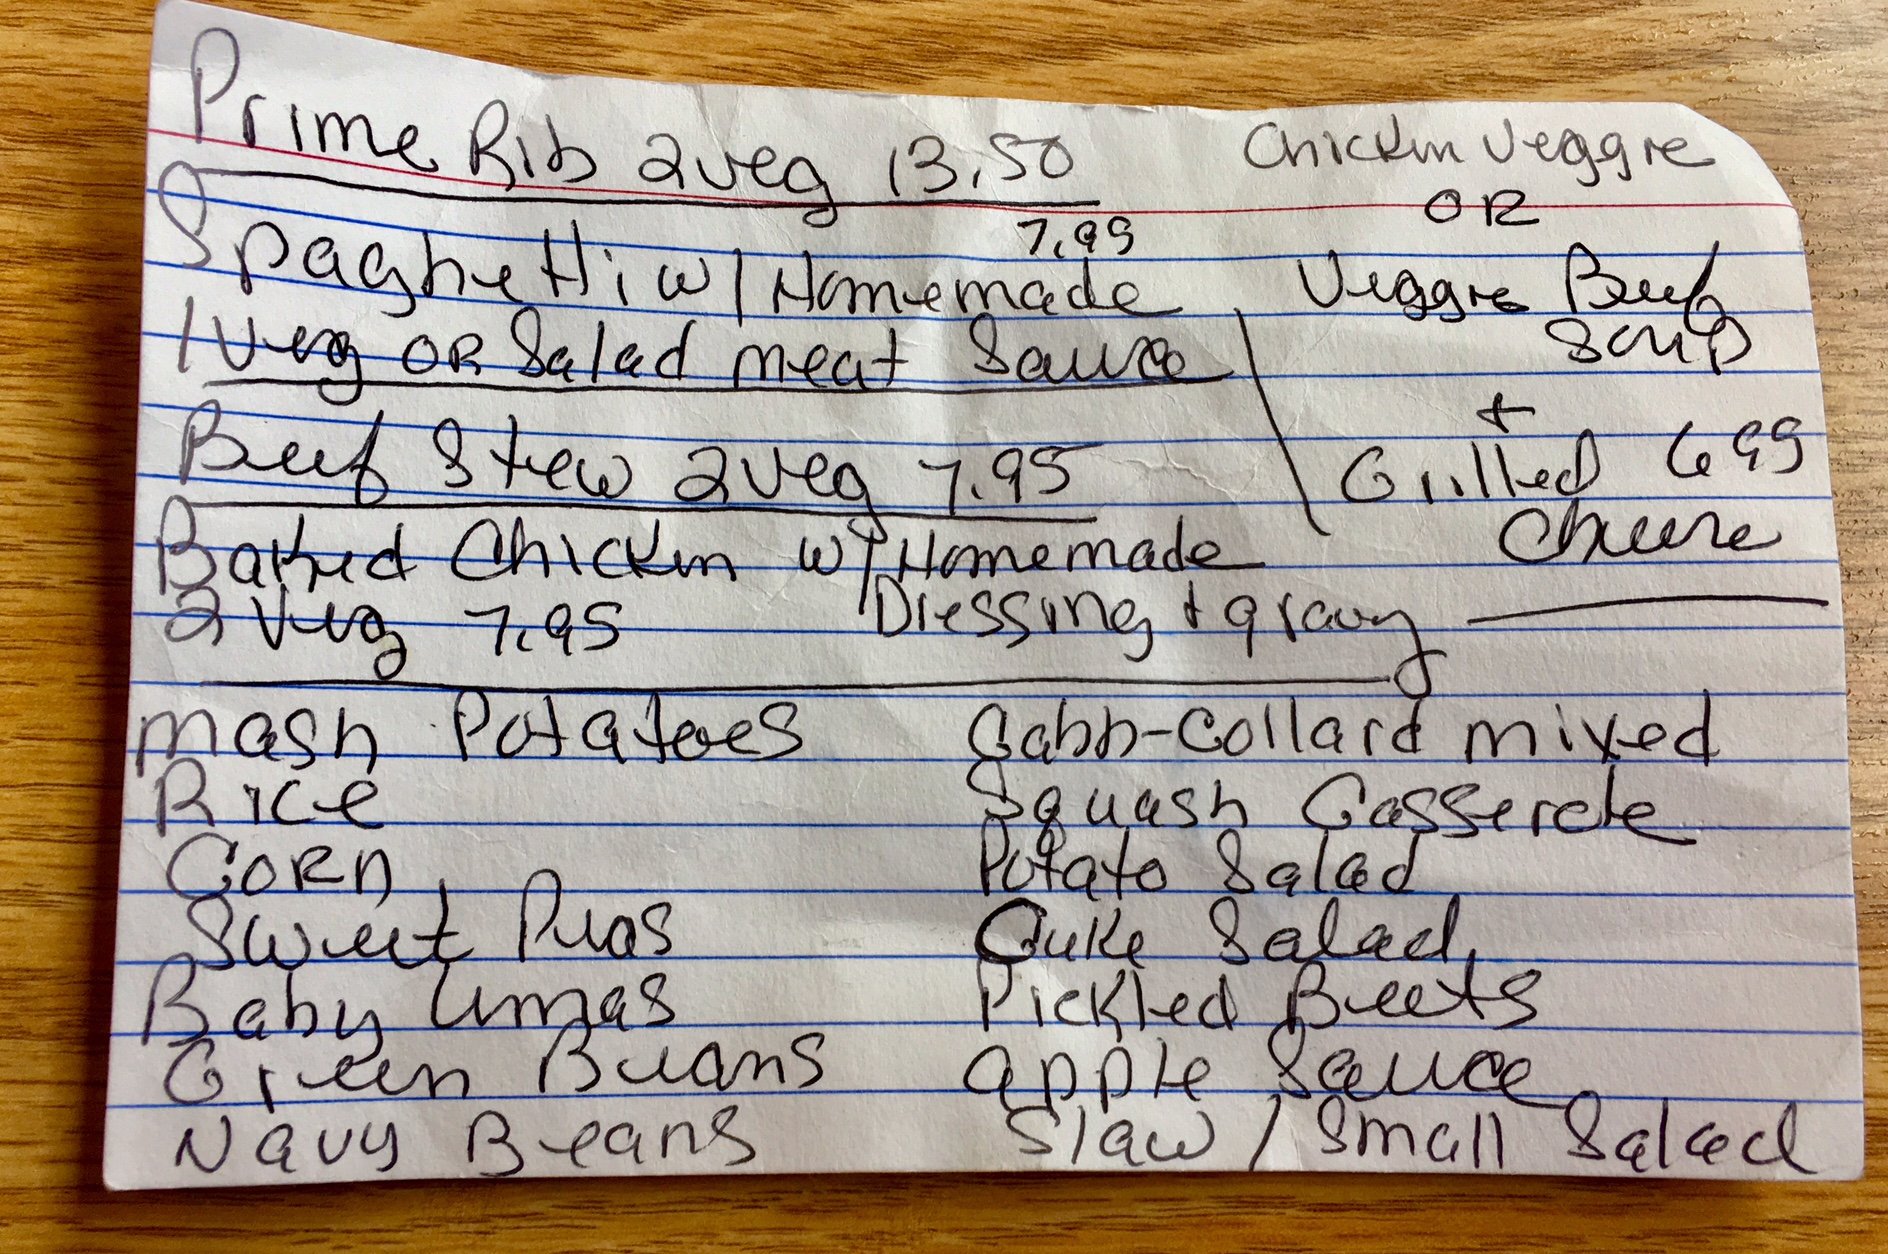 Prime Rib 2 veg 13.50
7.99
Spaghetti w/ Homemade
1 Veg OR Salad meat Sauce
Beef Stew 2 veg 7.95
Baked Chicken w/ Homemade
2 Veg 7.95 Dressing + gravy
Chicken Veggie
OR
Veggie Beef
Soup
+
Grilled 6 99
Cheese
mash Potatoes
Rice
CORN
Sweet Peas
Baby Limas
Green Beans
Navy Beans
Cabb-Collard mixed
Squash Casserole
Potato Salad
Cuke Salad
Pickled Beets
apple Sauce
Slaw / Small Salad